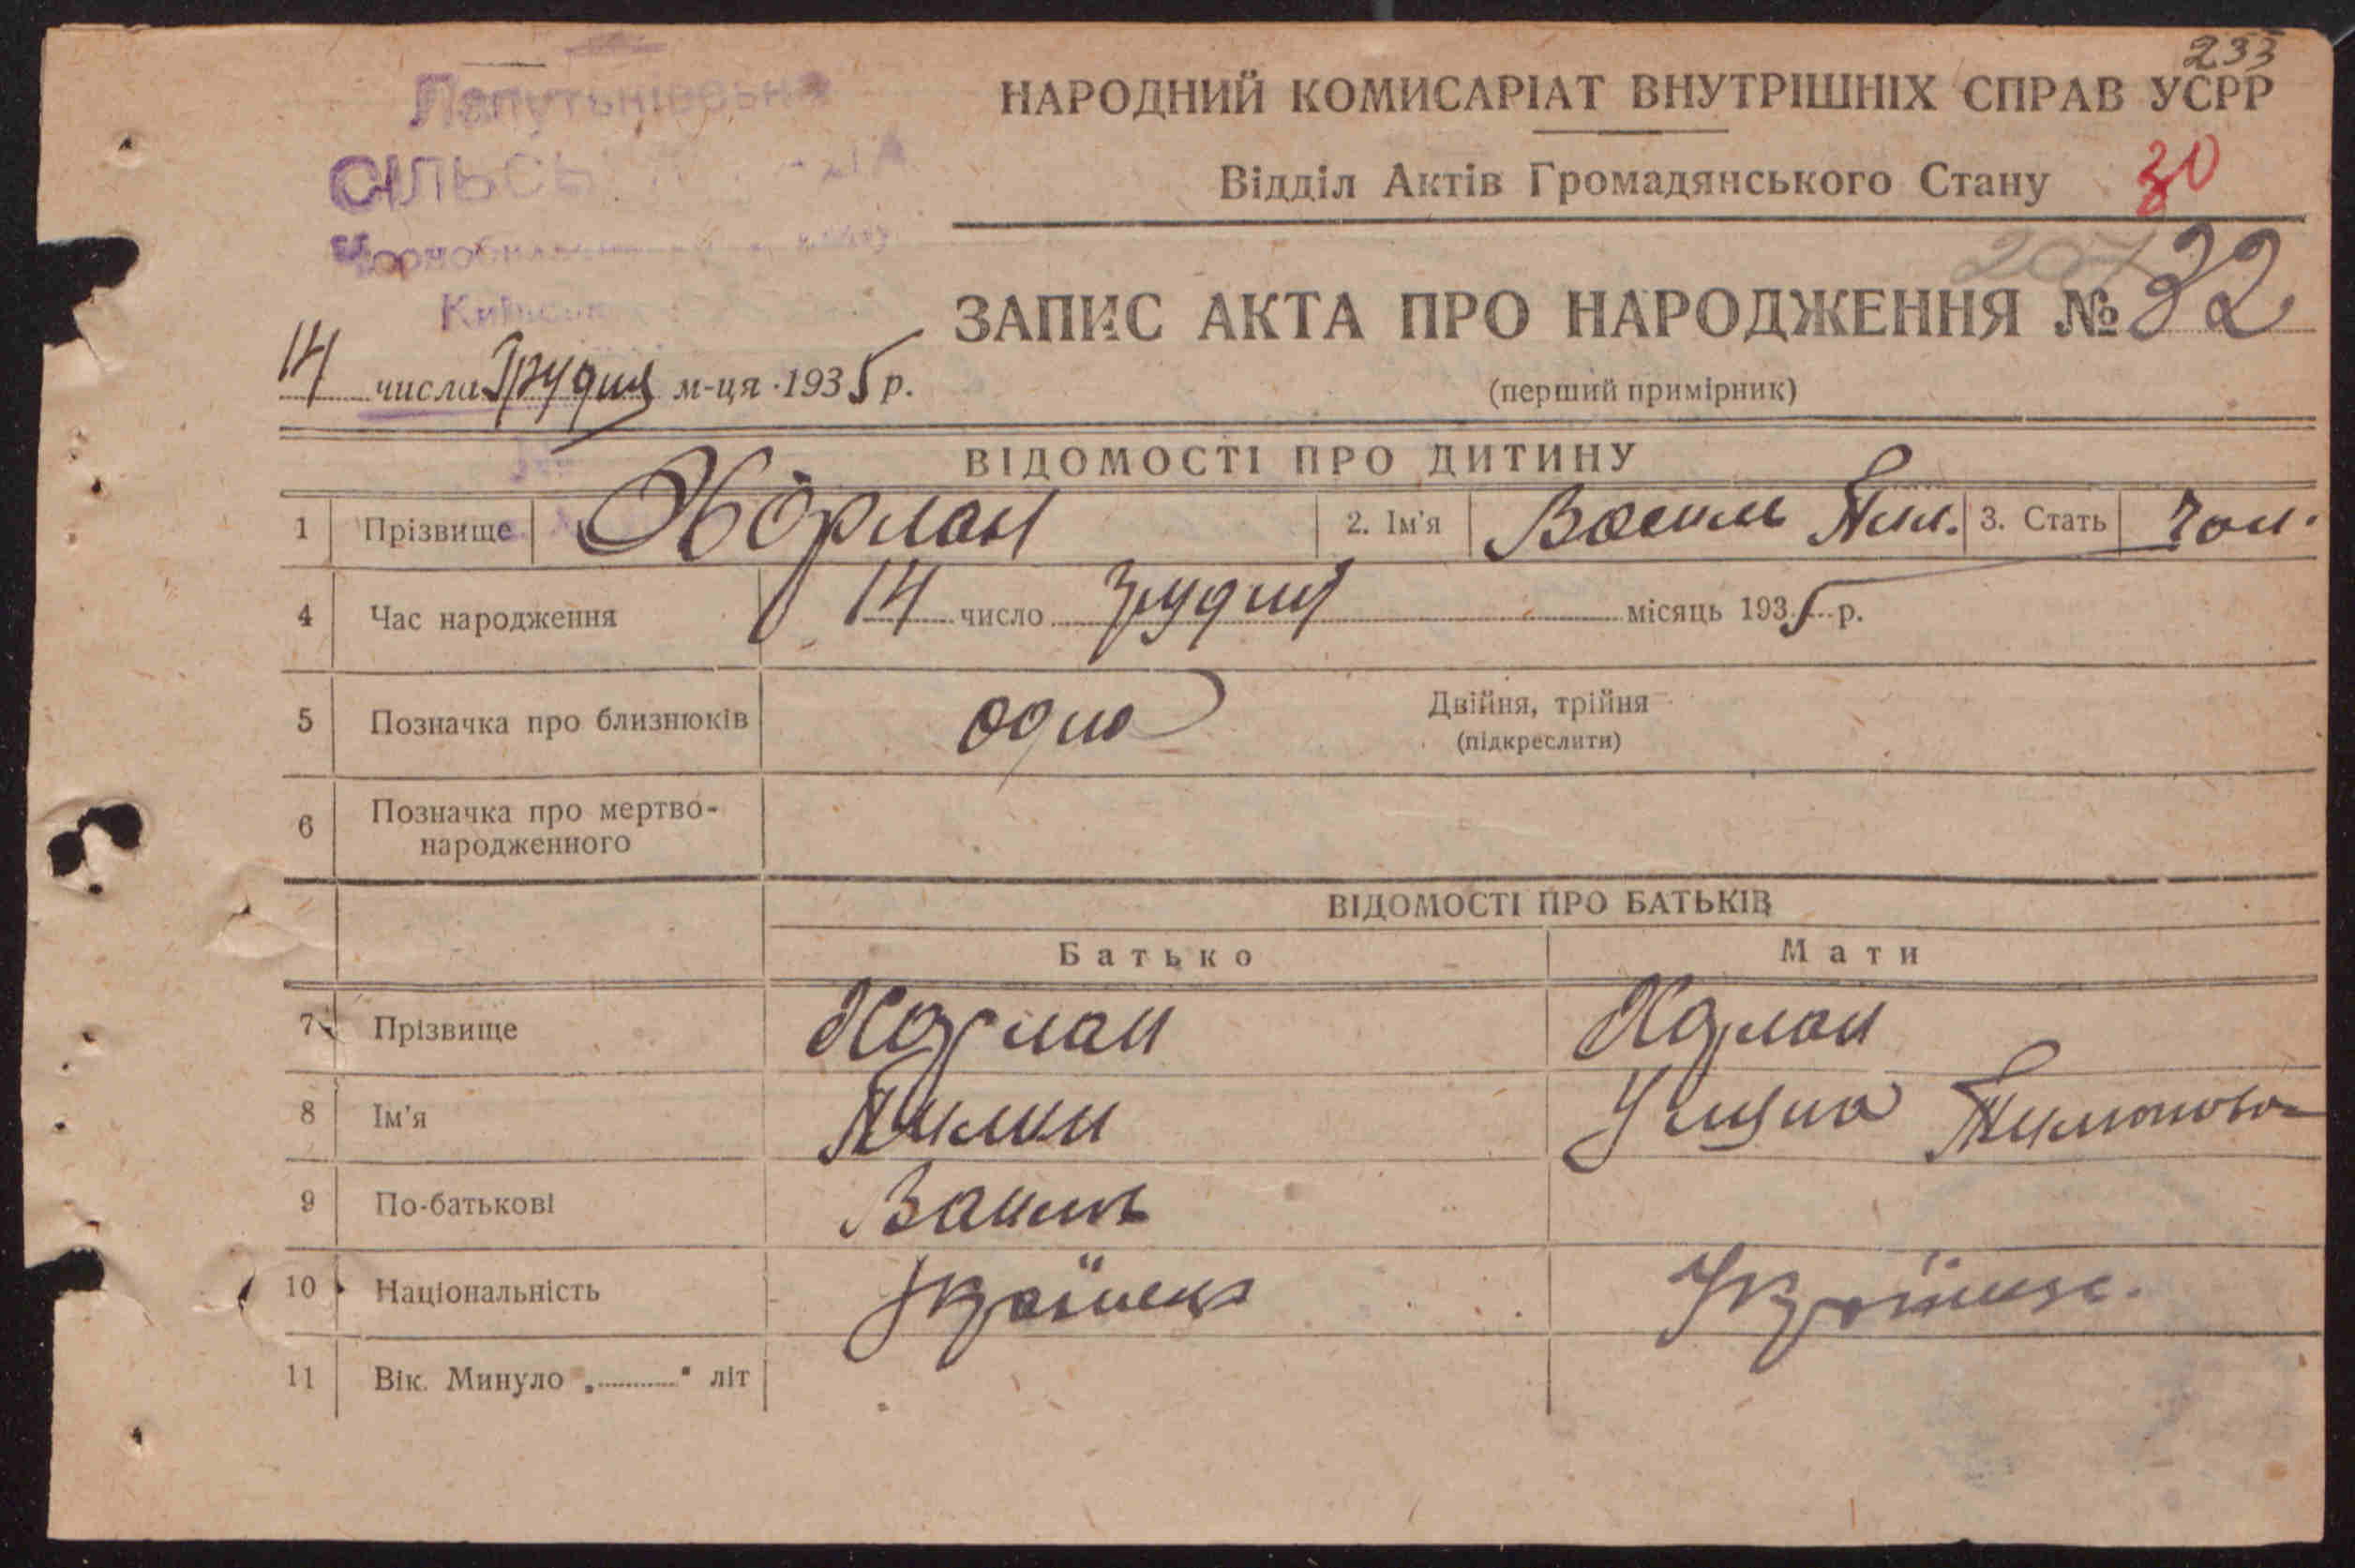 233
НАРОДНИЙ КОМИСАРІАТ ВНУТРІШНІХ СПРАВ УСРР
Відділ Актів Громадянського Стану 30
СІЛЬСЬ
207
ЗАПИС АКТА ПРО НАРОДЖЕННЯ № 32
14 числа Грудня м-ця 1935 р.
(перший примірник)
ВІДОМОСТІ ПРО ДИТИНУ
1 Прізвище Хорлан 2. Ім'я Василь Тим. 3. Стать Чол.
4 Час народження 14 число грудня місяць 1935 р.
5 Позначка про близнюків одно Двійня, трійня
(підкреслити)
6 Позначка про мертво-
народженного
ВІДОМОСТІ ПРО БАТЬКІВ
Батько Мати
7 Прізвище Хорлан Хорлан
8 Ім'я
9 По-батькові Василь
10 Національність Українець Українка.
11 Вік. Минуло „ " літ